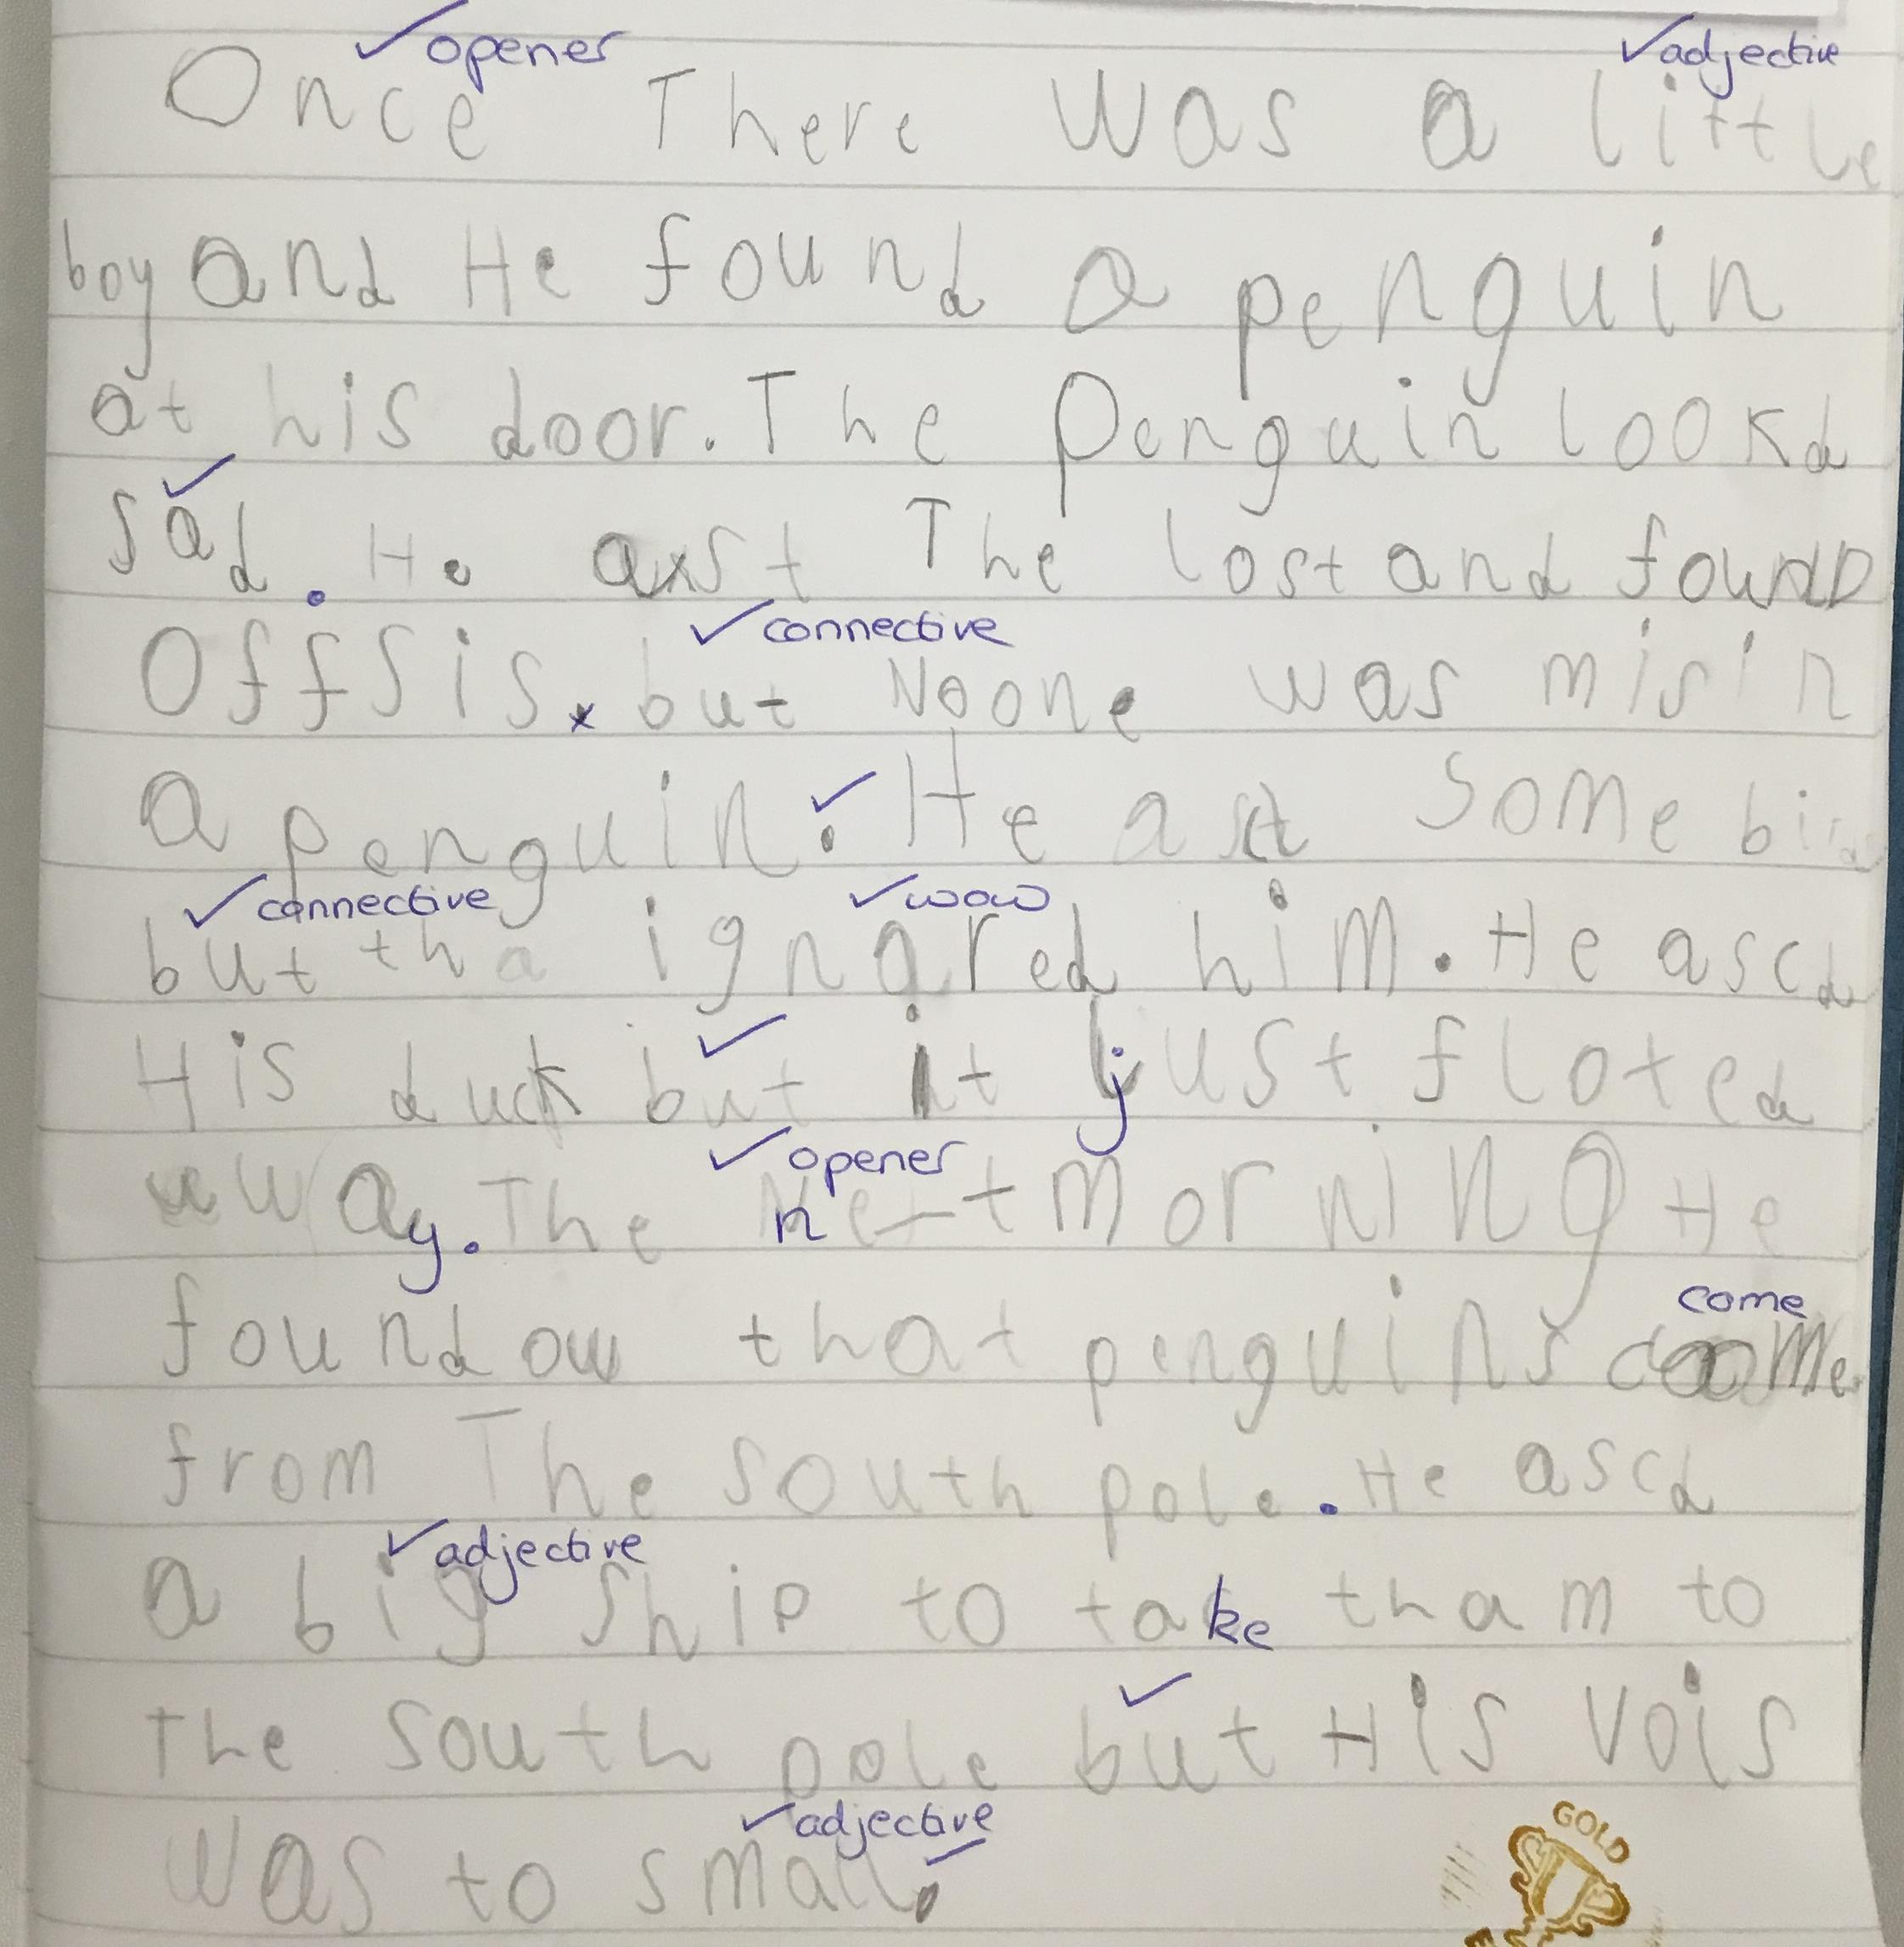 ✓opener ✓adjective
Once There was a little
boy and He found a penguin
at his door. The Penguin lookd
✓
sad. He axst The lost and founD
✓connective
Offsis. but Noone was misin
✓
a penguin. He ast some bird
✓connective ✓wow
but tha ignored him. He ascd
✓
His duck but it just floted
✓opener
uway. The next morning He
come
found ow that penguins come
from The south pole. He ascd
✓adjective
a big ship to take tham to
✓
The south pole but His vois
✓adjective
was to small.
GOLD